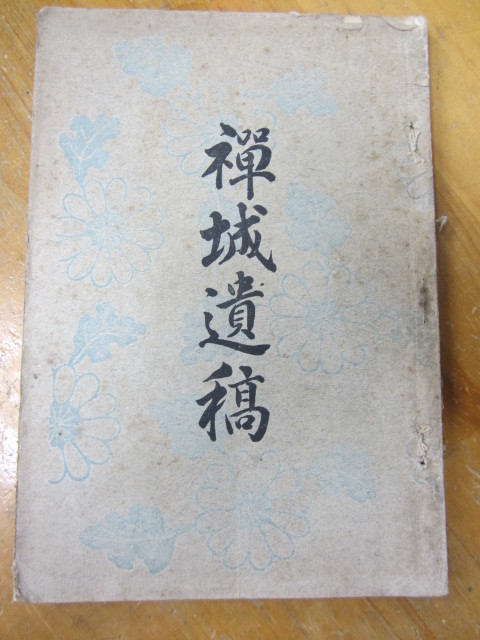 禪城遺稿